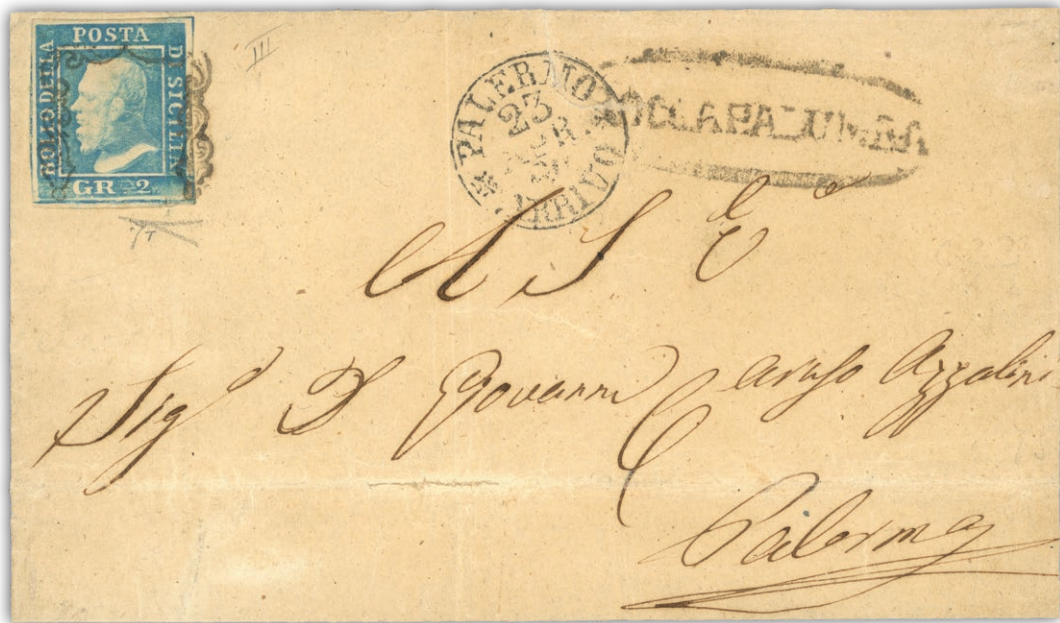 POSTA
BOLLO DELLA
DI SICILIA
GR. 2.
III
PALERMO
23
ARRIVO
A S E
Sigr D Giovanni Caruso Azzalini
Palermo